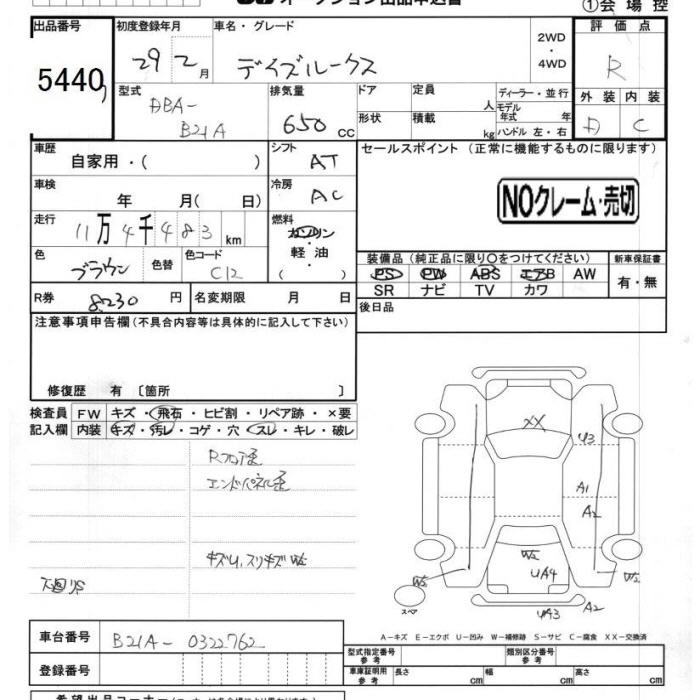 オークション出品申込書
①会場控
出品番号
5440
初度登録年月
29 2月
車名・グレード
デイズルークス
2WD
・
4WD
評価点
R
型式
DBA-
B21A
排気量
650 CC
ドア
定員
人
形状
積載
kg
ディーラー・並行
モデル
年式 年
ハンドル 左・右
外装 内装
D C
車歴
自家用・( )
シフト
AT
セールスポイント (正常に機能するものに限ります)
NOクレーム・売切
車検
年 月( 日)
冷房
AC
走行
11万4千483km
燃料
ガソリン
・
軽油
( )
色
ブラウン
色替
色コード
C12
装備品 (純正品に限り○をつけてください)
PS PW ABS エアB AW
SR ナビ TV カワ
新車保証書
有・無
R券
8230円
名変期限 月 日
後日品
注意事項申告欄(不具合内容等は具体的に記入して下さい)
修復歴 有 〔箇所 〕
検査員
記入欄
FW キズ・飛石・ヒビ割・リペア跡・×要
内装 キズ・汚レ・コゲ・穴・スレ・キレ・破レ
Rフロア歪
エンドパネル歪
キズU、スリキズW2
下回りS
XX
U3
A1
A2
W2
UA4
W2
W2
UA3
A2
スペア
A－キズ E－エクボ U－凹み W－補修跡 S－サビ C－腐食 XX－交換済
車台番号
B21A-0322762
登録番号
型式指定番号
参考
類別区分番号
参考
車庫証明用
参考
長さ cm
幅 cm
高さ cm